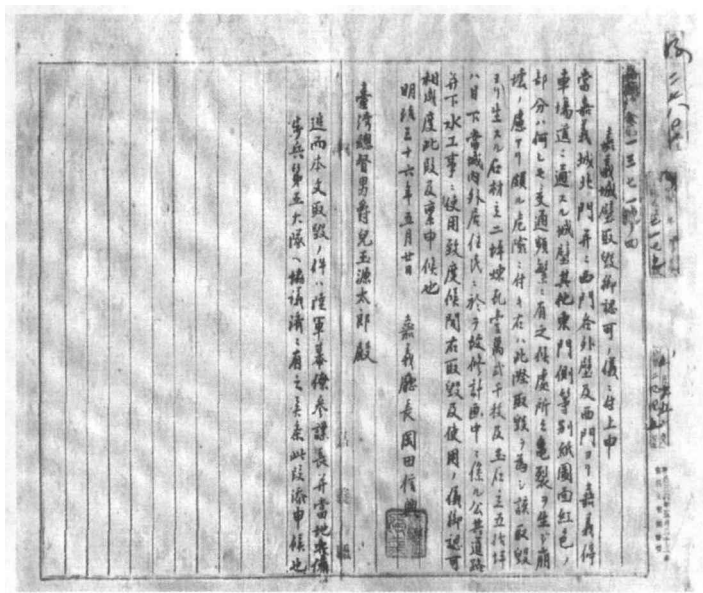 嘉義城壁取毀御認可ノ儀ニ付上申
當嘉義城北門并ニ西門各外壁及西門ヨリ嘉義停
車場道ニ通スル城壁其他東門側等別紙圖面紅色ノ
部分ハ何レモ交通頻繁ニ有之候處所々龜裂ヲ生シ崩
壊ノ慮アリ頗ル危險ニ付キ右ハ此際取毀ヲ為シ該取毀
ヨリ生スル石材立二坪煉瓦壹萬貳千枚及玉石立五拾坪
ハ目下當城内外居住民ニ於テ改修計画中ニ係ル公共道路
并下水工事ニ使用致度候間右取毀及使用ノ儀御認可
相成度此段及稟申候也
明治三十六年五月廿日
嘉義廳長岡田信興
臺灣總督男爵兒玉源太郎殿
追而本文取毀ノ件ハ陸軍幕僚參謀長并當地守備
步兵第五大隊ヘ協議濟ニ有之候条此段添申候也